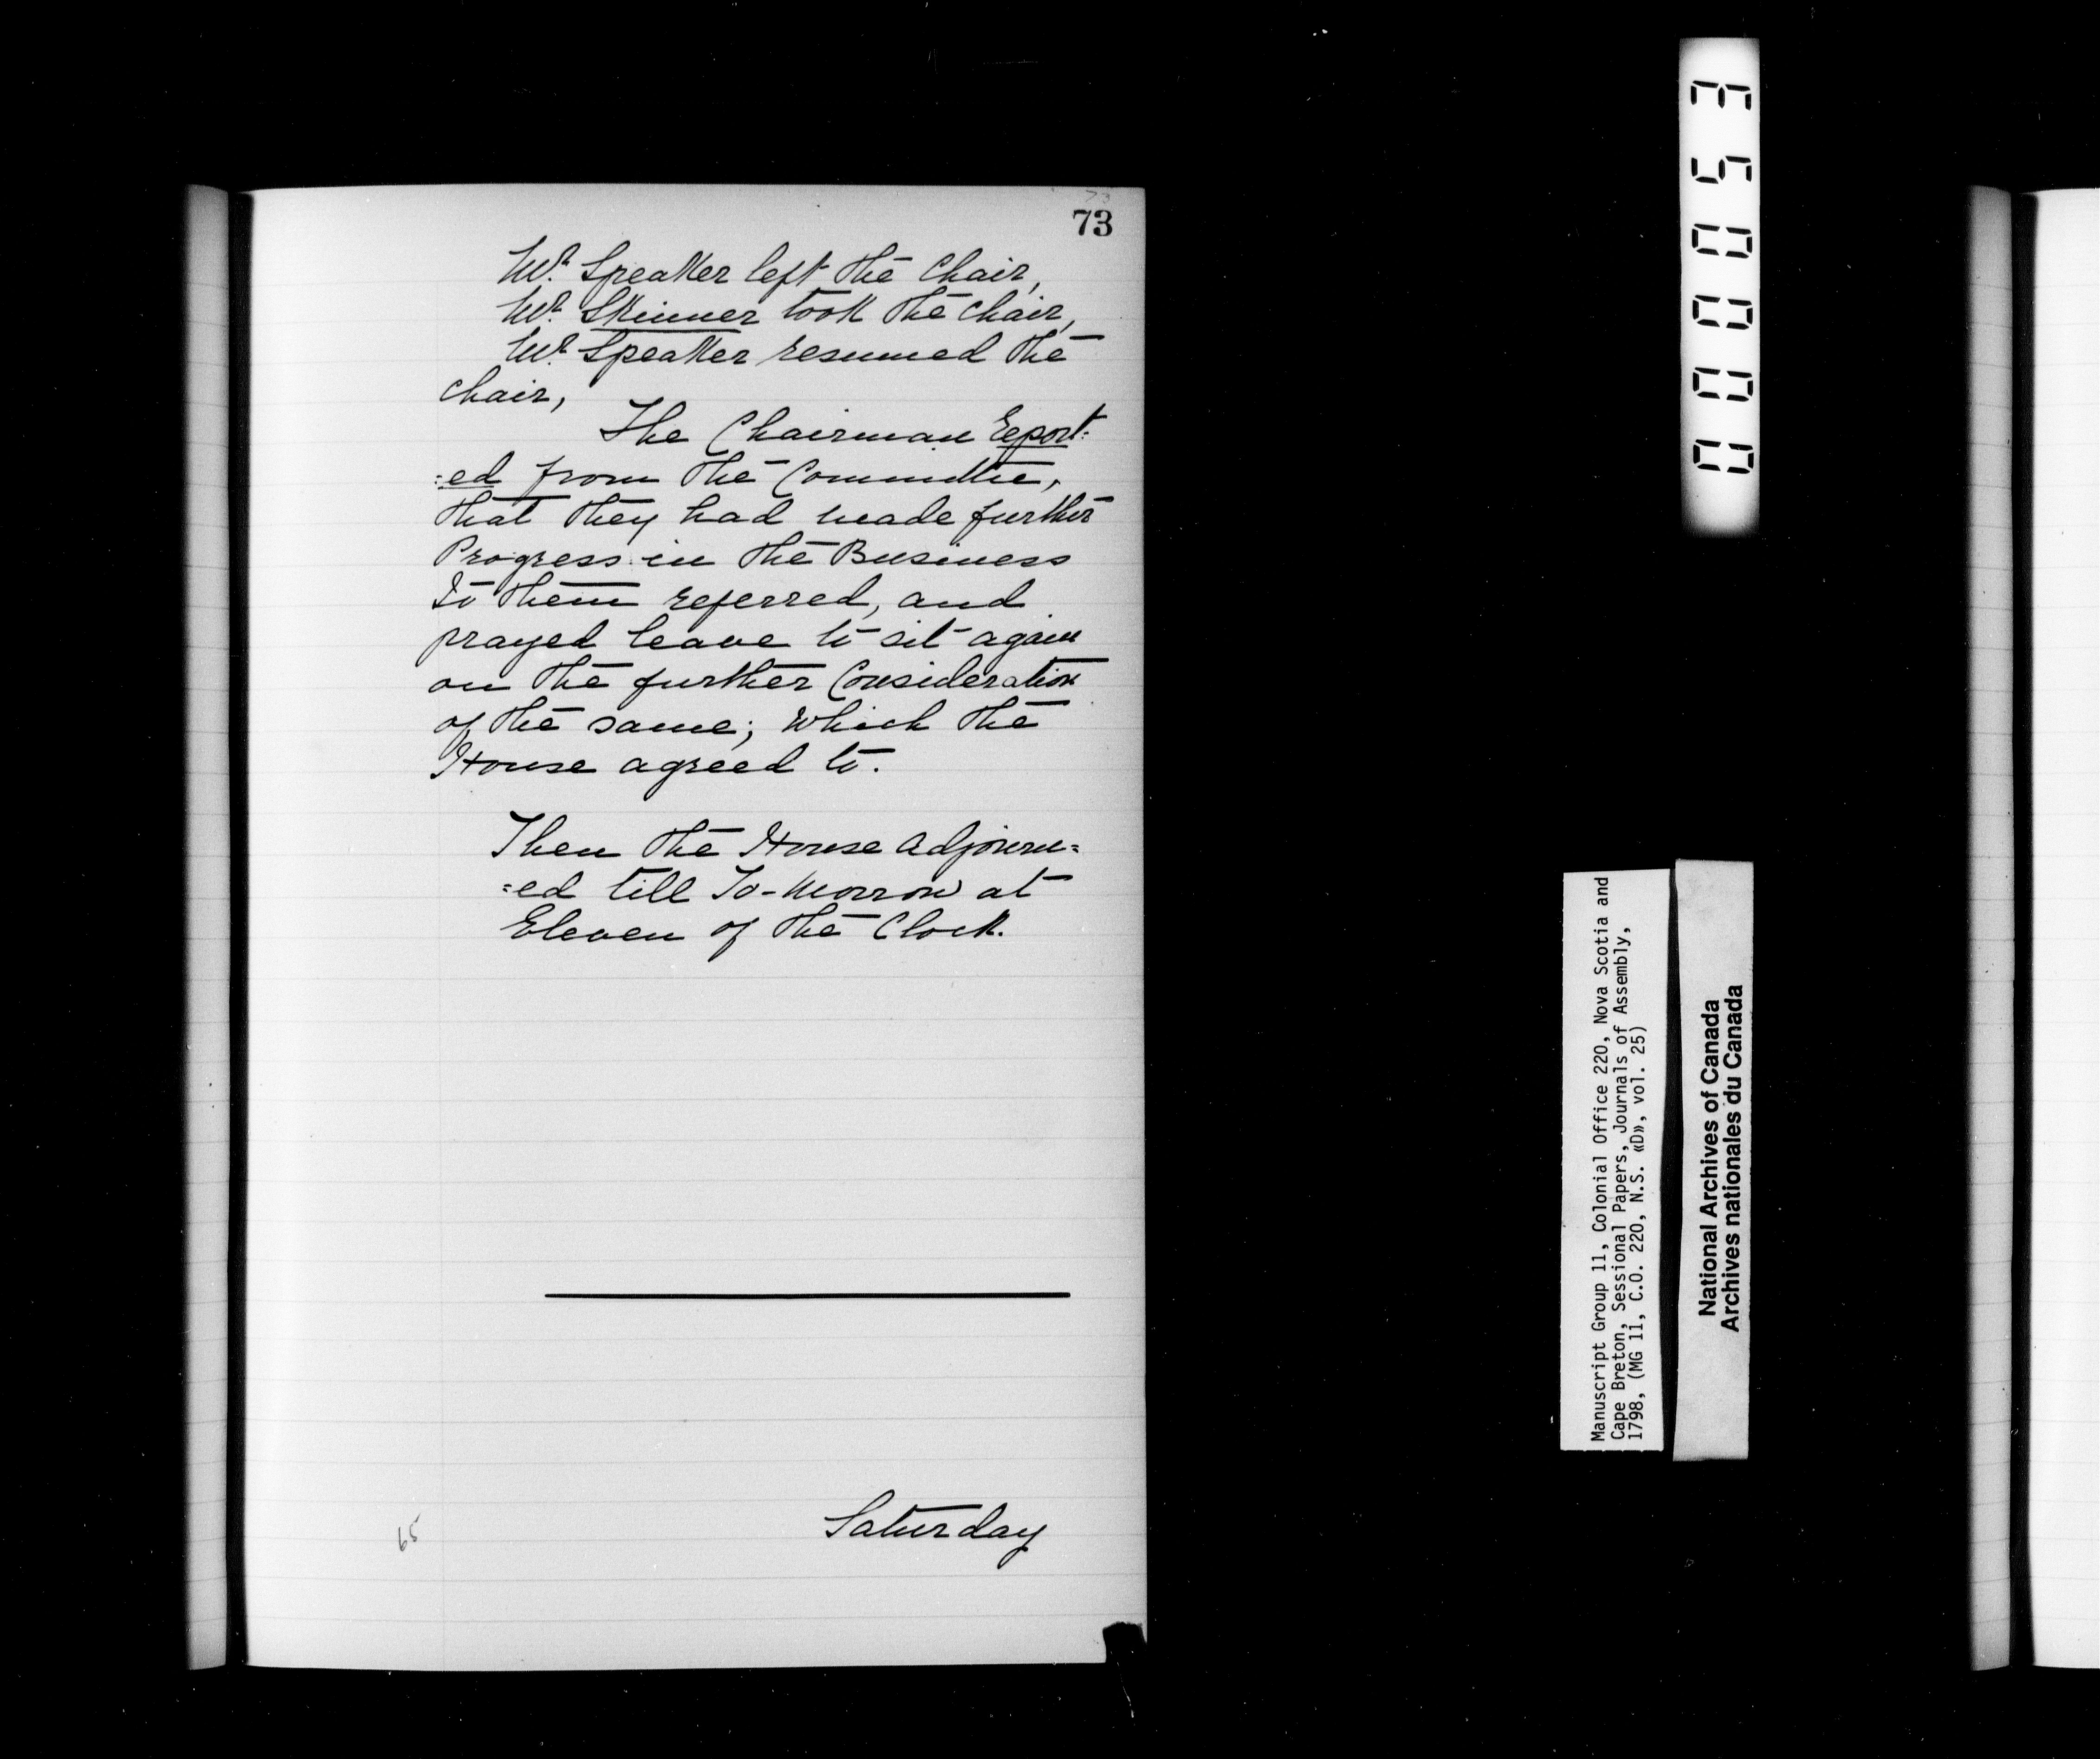 73
73
Mr. Speaker left the Chair,
Mr. Skinner took the chair,
Mr. Speaker resumed the
chair,
The Chairman Report:
:ed from the Committee,
that they had made further
Progress in the Business
to them referred, and
prayed leave to sit again
on the further Consideration
of the same; which the
House agreed to.
Then the House adjourn=
=ed till To-morrow at
Eleven of the Clock.
Saturday
65
000053
Manuscript Group 11, Colonial Office 220, Nova Scotia and
Cape Breton, Sessional Papers, Journals of Assembly,
1798, (MG 11, C.O. 220, N.S. «D», vol. 25)
National Archives of Canada
Archives nationales du Canada